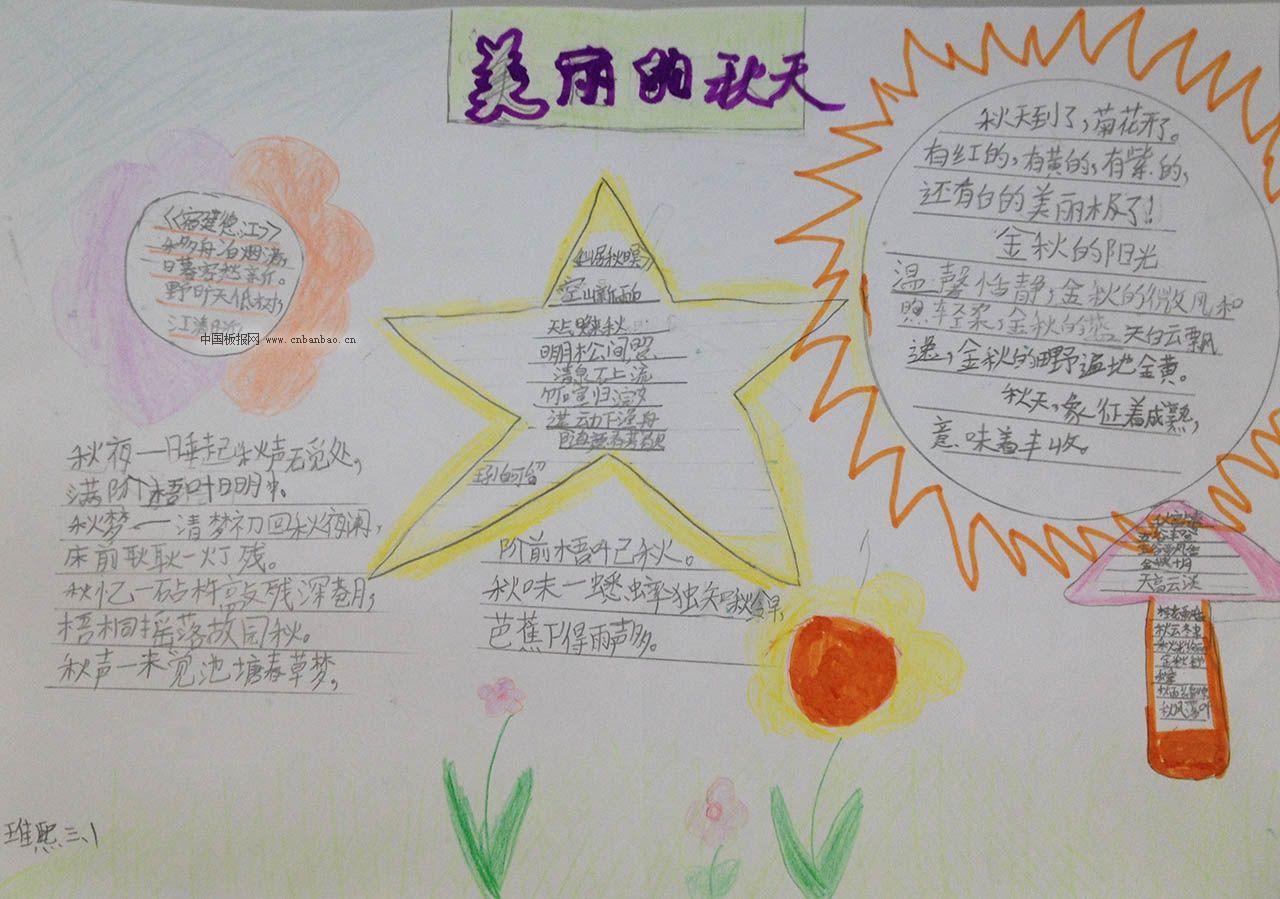 美丽的秋天
《宿建德江》
舟泊烟渚,
日暮客愁新。
野旷天低树,
江清月近
中国板报网 www.cnbanbao.cn
秋夜一睡起秋声无觅处,
满阶梧叶月明中。
秋梦一清梦初回秋夜阑,
床前耿耿一灯残。
秋忆一砧杵敲残深巷月,
梧桐摇落故园秋。
秋声一未觉池塘春草梦,
山居秋暝》
空山新雨
天气晚秋
明月松间照
清泉石上流
竹喧归浣
莲动下渔舟
阶前梧叶已秋。
秋味一蟋蟀独知秋令早,
芭蕉下得雨声多。
秋天到了,菊花开了。
有红的,有黄的,有紫的,
还有白的美丽极了!
金秋的阳光
温馨恬静,金秋的微风和
煦轻柔,金秋的蓝天白云飘
逸,金秋的田野遍地金黄。
秋天,象征着成熟,
意味着丰收。
金秋十月
天高云淡
秋风落叶
熙三、1